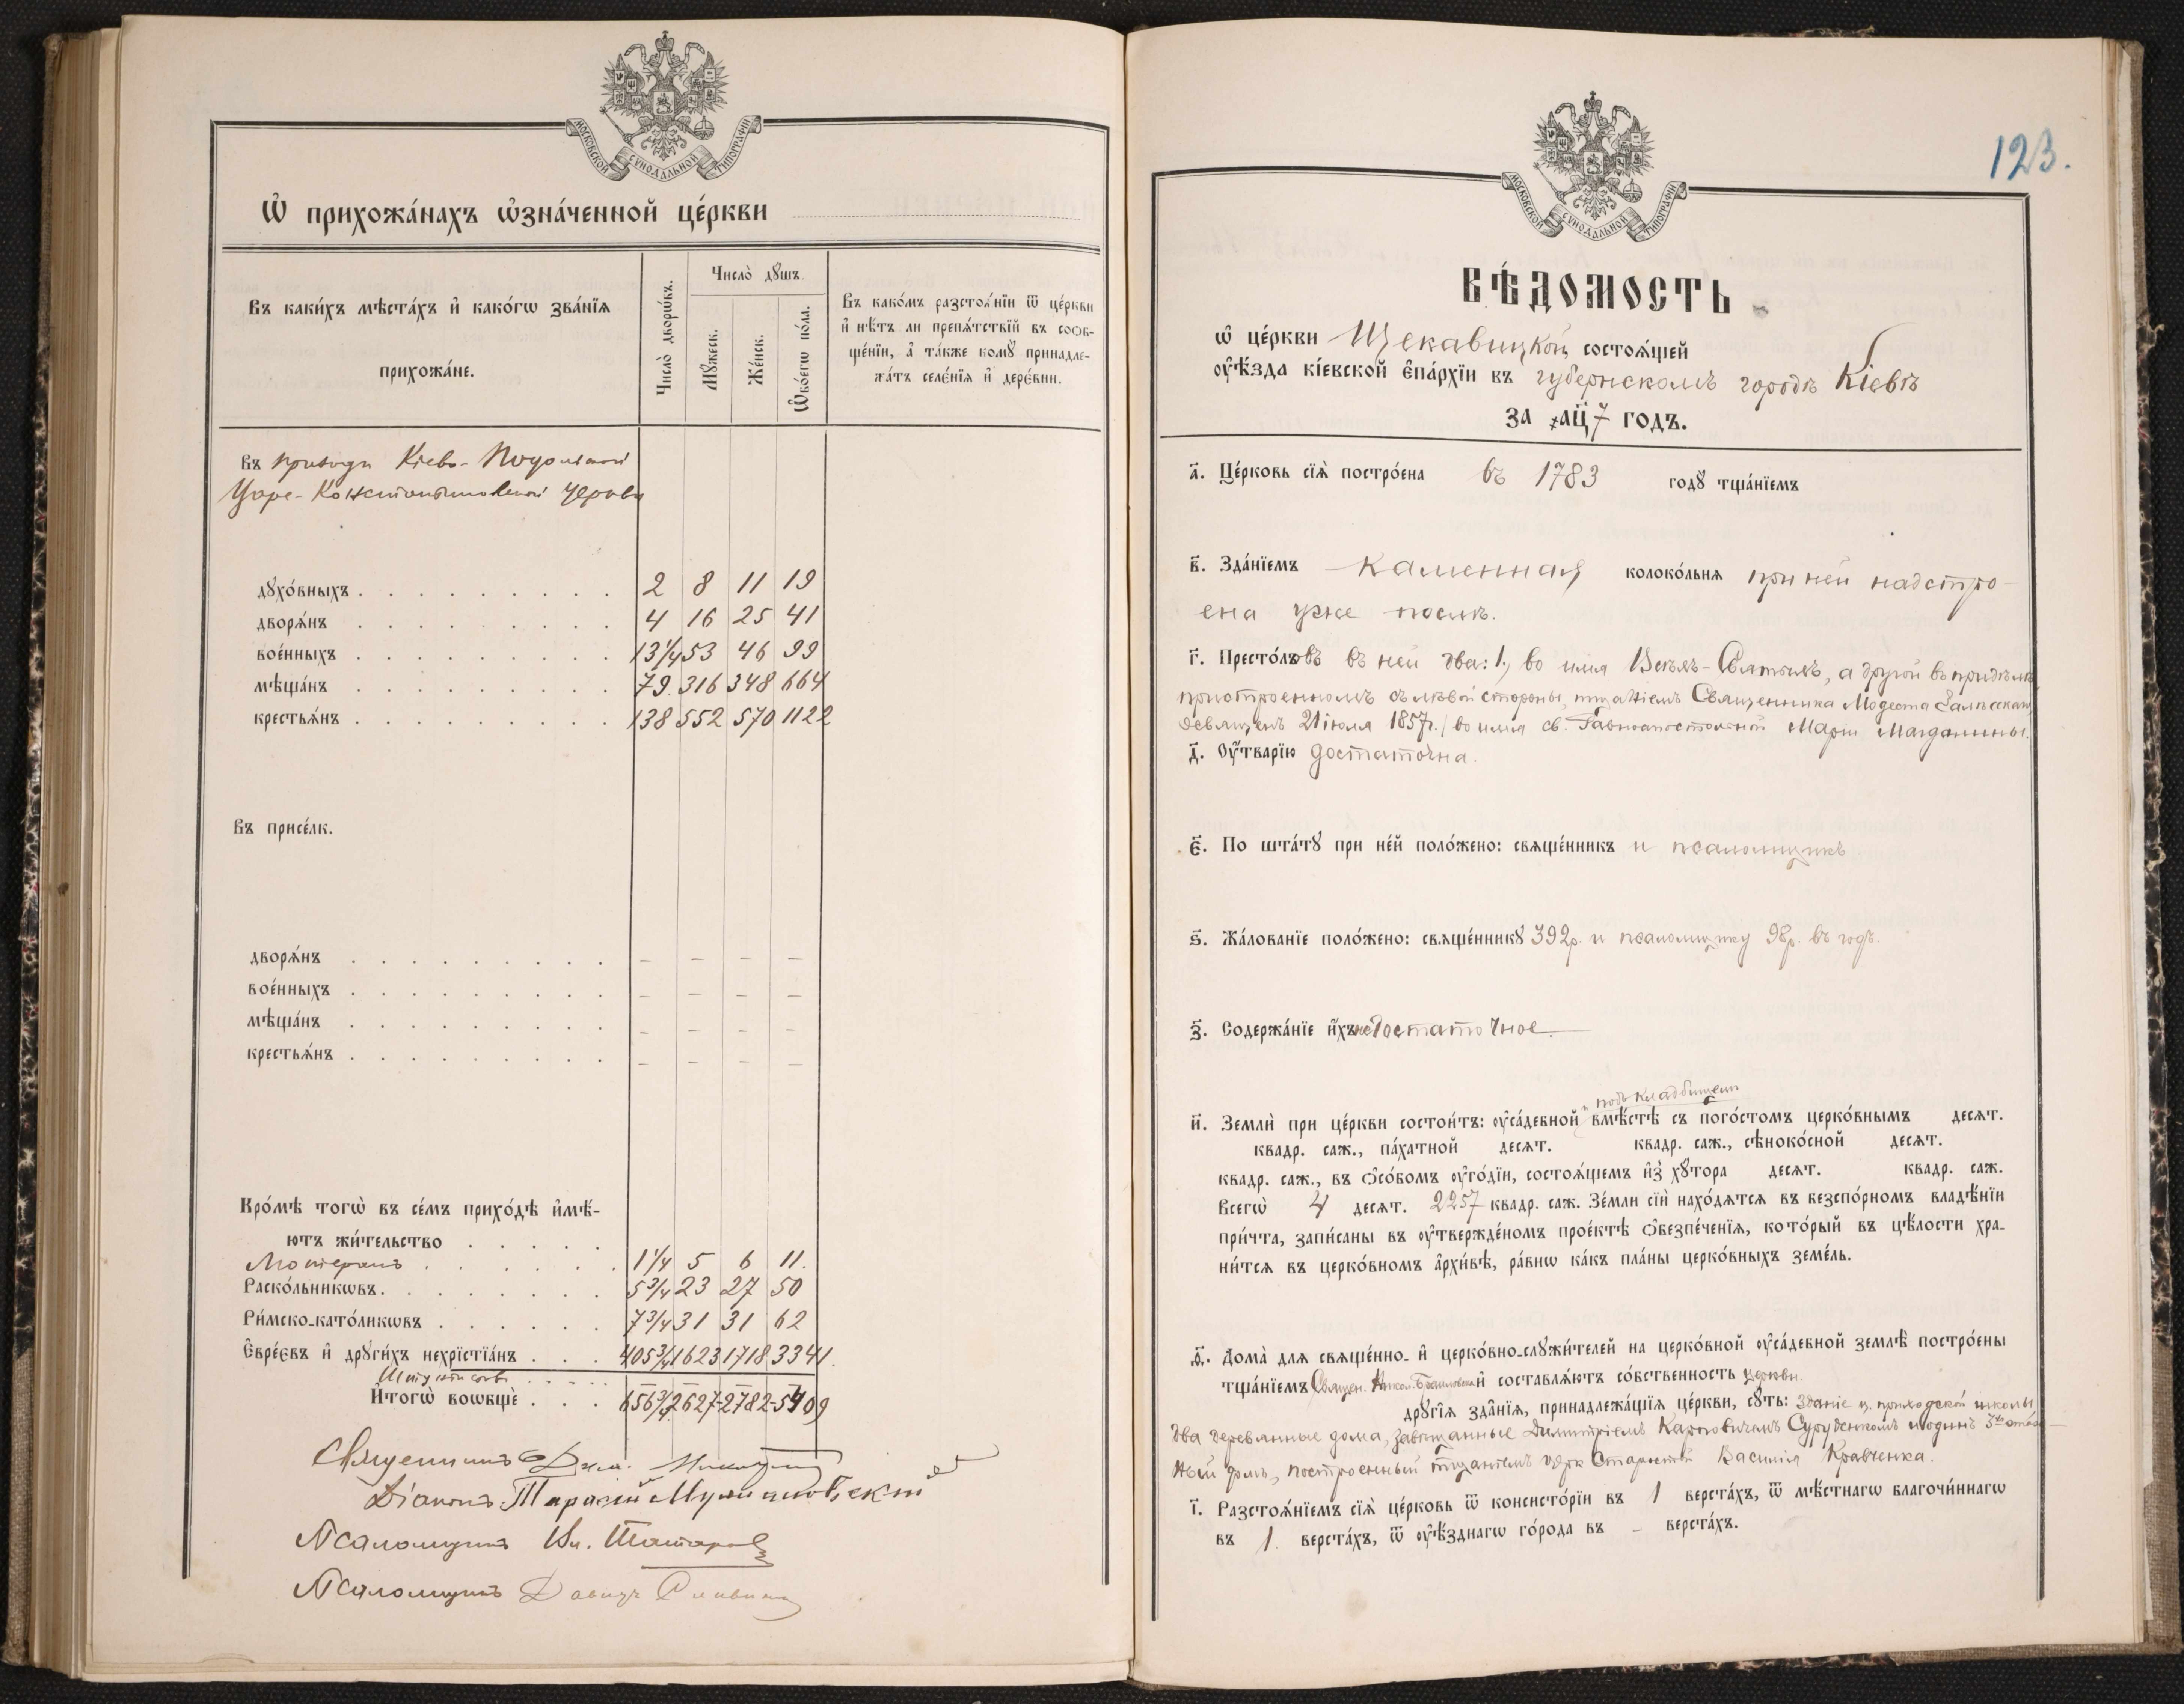 МОСКОВСКОЙ СѴНОДАЛЬНОЙ ТИПОГРАФІИ
Ѡ҆ прихожа́нахъ ѡ҆зна́ченной це́ркви
Въ каки́хъ мѣста́хъ и҆ како́гѡ зва́нїѧ
прихожа́не.
Число̀ дворѡ́въ.
Число̀ дꙋшъ.
Мꙋ́жеск.
Же́нск.
Ѻ҆бо́егѡ по́ла.
Въ како́мъ разстоѧ́нїи ѿ це́ркви
и҆ нѣ́тъ ли препѧ́тствїй въ соѻб-
ще́нїи, а҆ та́кже комꙋ̀ принадле-
жа́тъ селе́нїѧ и҆ дере́вни.
Въ приходѣ Кіево-Подольской
Царе-Константиновской церкви
дꙋхо́вныхъ . . . 2 8 11 19
дворѧ́нъ . . . 4 16 25 41
вое́нныхъ . . . 13 1/4 53 46 99
мѣща́нъ . . . 79 316 348 664
крестьѧ́нъ . . . 138 552 570 1122
Въ присе́лк.
дворѧ́нъ . . . – – – –
вое́нныхъ . . . – – – –
мѣща́нъ . . . – – – –
крестьѧ́нъ . . . – – – –
Кро́мѣ тогѡ̀ въ се́мъ прихо́дѣ и҆мѣ́-
ютъ жи́тельство . . .
Лютеранъ . . . 1 1/4 5 6 11.
Раско́льникѡвъ . . . 5 3/4 23 27 50
Ри́мско-като́ликѡвъ . . . 7 3/4 31 31 62
Є҆вре́євъ и҆ дрꙋги́хъ нехрїстїа́нъ . . . 405 3/4 1623 1718 3341.
И҆тогѡ̀ воѡбщѐ . . . 656 3/4 2627 2782 5409
Священникъ
Діаконъ Тарасій
Псаломщикъ
Псаломщикъ Давидъ
123.
МОСКОВСКОЙ СѴНОДАЛЬНОЙ ТИПОГРАФІИ
ВѢ́ДОМОСТЬ
ѡ҆ це́ркви Щекавицкой состоѧ́щей
ᲂу҆ѣ́зда кі́евской є҆па́рхїи въ губернскомъ городѣ Кіевѣ
за ҂ац҃7 годъ.
а҃. Це́рковь сїѧ̀ постро́ена въ 1783 годꙋ̀ тща́нїемъ
в҃. Зда́нїемъ каменная колоко́льнѧ при ней надстро-
ена уже послѣ.
г҃. Престо́ловъ въ ней два: 1) во имя Всѣхъ-Святыхъ, а другой въ придѣлѣ,
пристроенномъ съ лѣвой стороны, тщаніемъ Священника Модеста
освященъ 21 іюля 1857 г. / во имя св. Равноапостольной Маріи Магдалины.
д҃. Оу҆́тварїю достаточна.
є҃. По шта́тꙋ при не́й поло́жено: свѧще́нникъ и псаломщикъ
ѕ҃. Жа́лованїе поло́жено: свѧще́нникꙋ 392 р. и псаломщику 98 р. въ годъ.
з҃. Содержа́нїе и҆́хъ недостаточное.
и подъ кладбищемъ
и҃. Землѝ при це́ркви состои́тъ: ᲂу҆са́дебной вмѣ́стѣ съ пого́стомъ церко́внымъ десѧт.
квадр. саж., па́хатной десѧт. квадр. саж., сѣноко́сной десѧт.
квадр. саж., въ ѻ҆со́бомъ ᲂу҆го́дїи, состоѧ́щемъ и҆з̾ хꙋ́тора десѧт. квадр. саж.
Всегѡ̀ 4 десѧт. 2257 квадр. саж. Зе́мли сїѝ нахо́дѧтсѧ въ безспо́рномъ владѣ́нїи
при́чта, запи́саны въ ᲂу҆твержде́номъ прое́ктѣ ѻ҆безпе́ченїѧ, кото́рый въ цѣ́лости хра-
ни́тсѧ въ церко́вномъ а҆рхи́вѣ, ра́внѡ ка́къ пла́ны церко́вныхъ земе́ль.
ѳ҃. Дома̀ для свѧще́нно- и҆ церко́вно-слꙋжи́телей на церко́вной ᲂу҆са́дебной землѣ̀ постро́ены
тща́нїемъ Священ. и҆ составлѧ́ютъ со́бственность церкви.
дрꙋгі̑ѧ зда̑нїѧ, принадлежа́щїѧ це́ркви, сꙋ́ть: зданіе ц. приходской школы,
два деревянные дома, завѣщанные Димитріемъ Карповичемъ и одинъ
ный домъ, построенный тщаніемъ церк. Старосты Василія Кравченка.
і҃. Разстоѧ́нїемъ сїѧ̀ це́рковь ѿ консисто́рїи въ 1 верста́хъ, ѿ мѣ́стнагѡ благочи́ннагѡ
въ 1 верста́хъ, ѿ ᲂу҆ѣ́зднагѡ го́рода въ – верста́хъ.